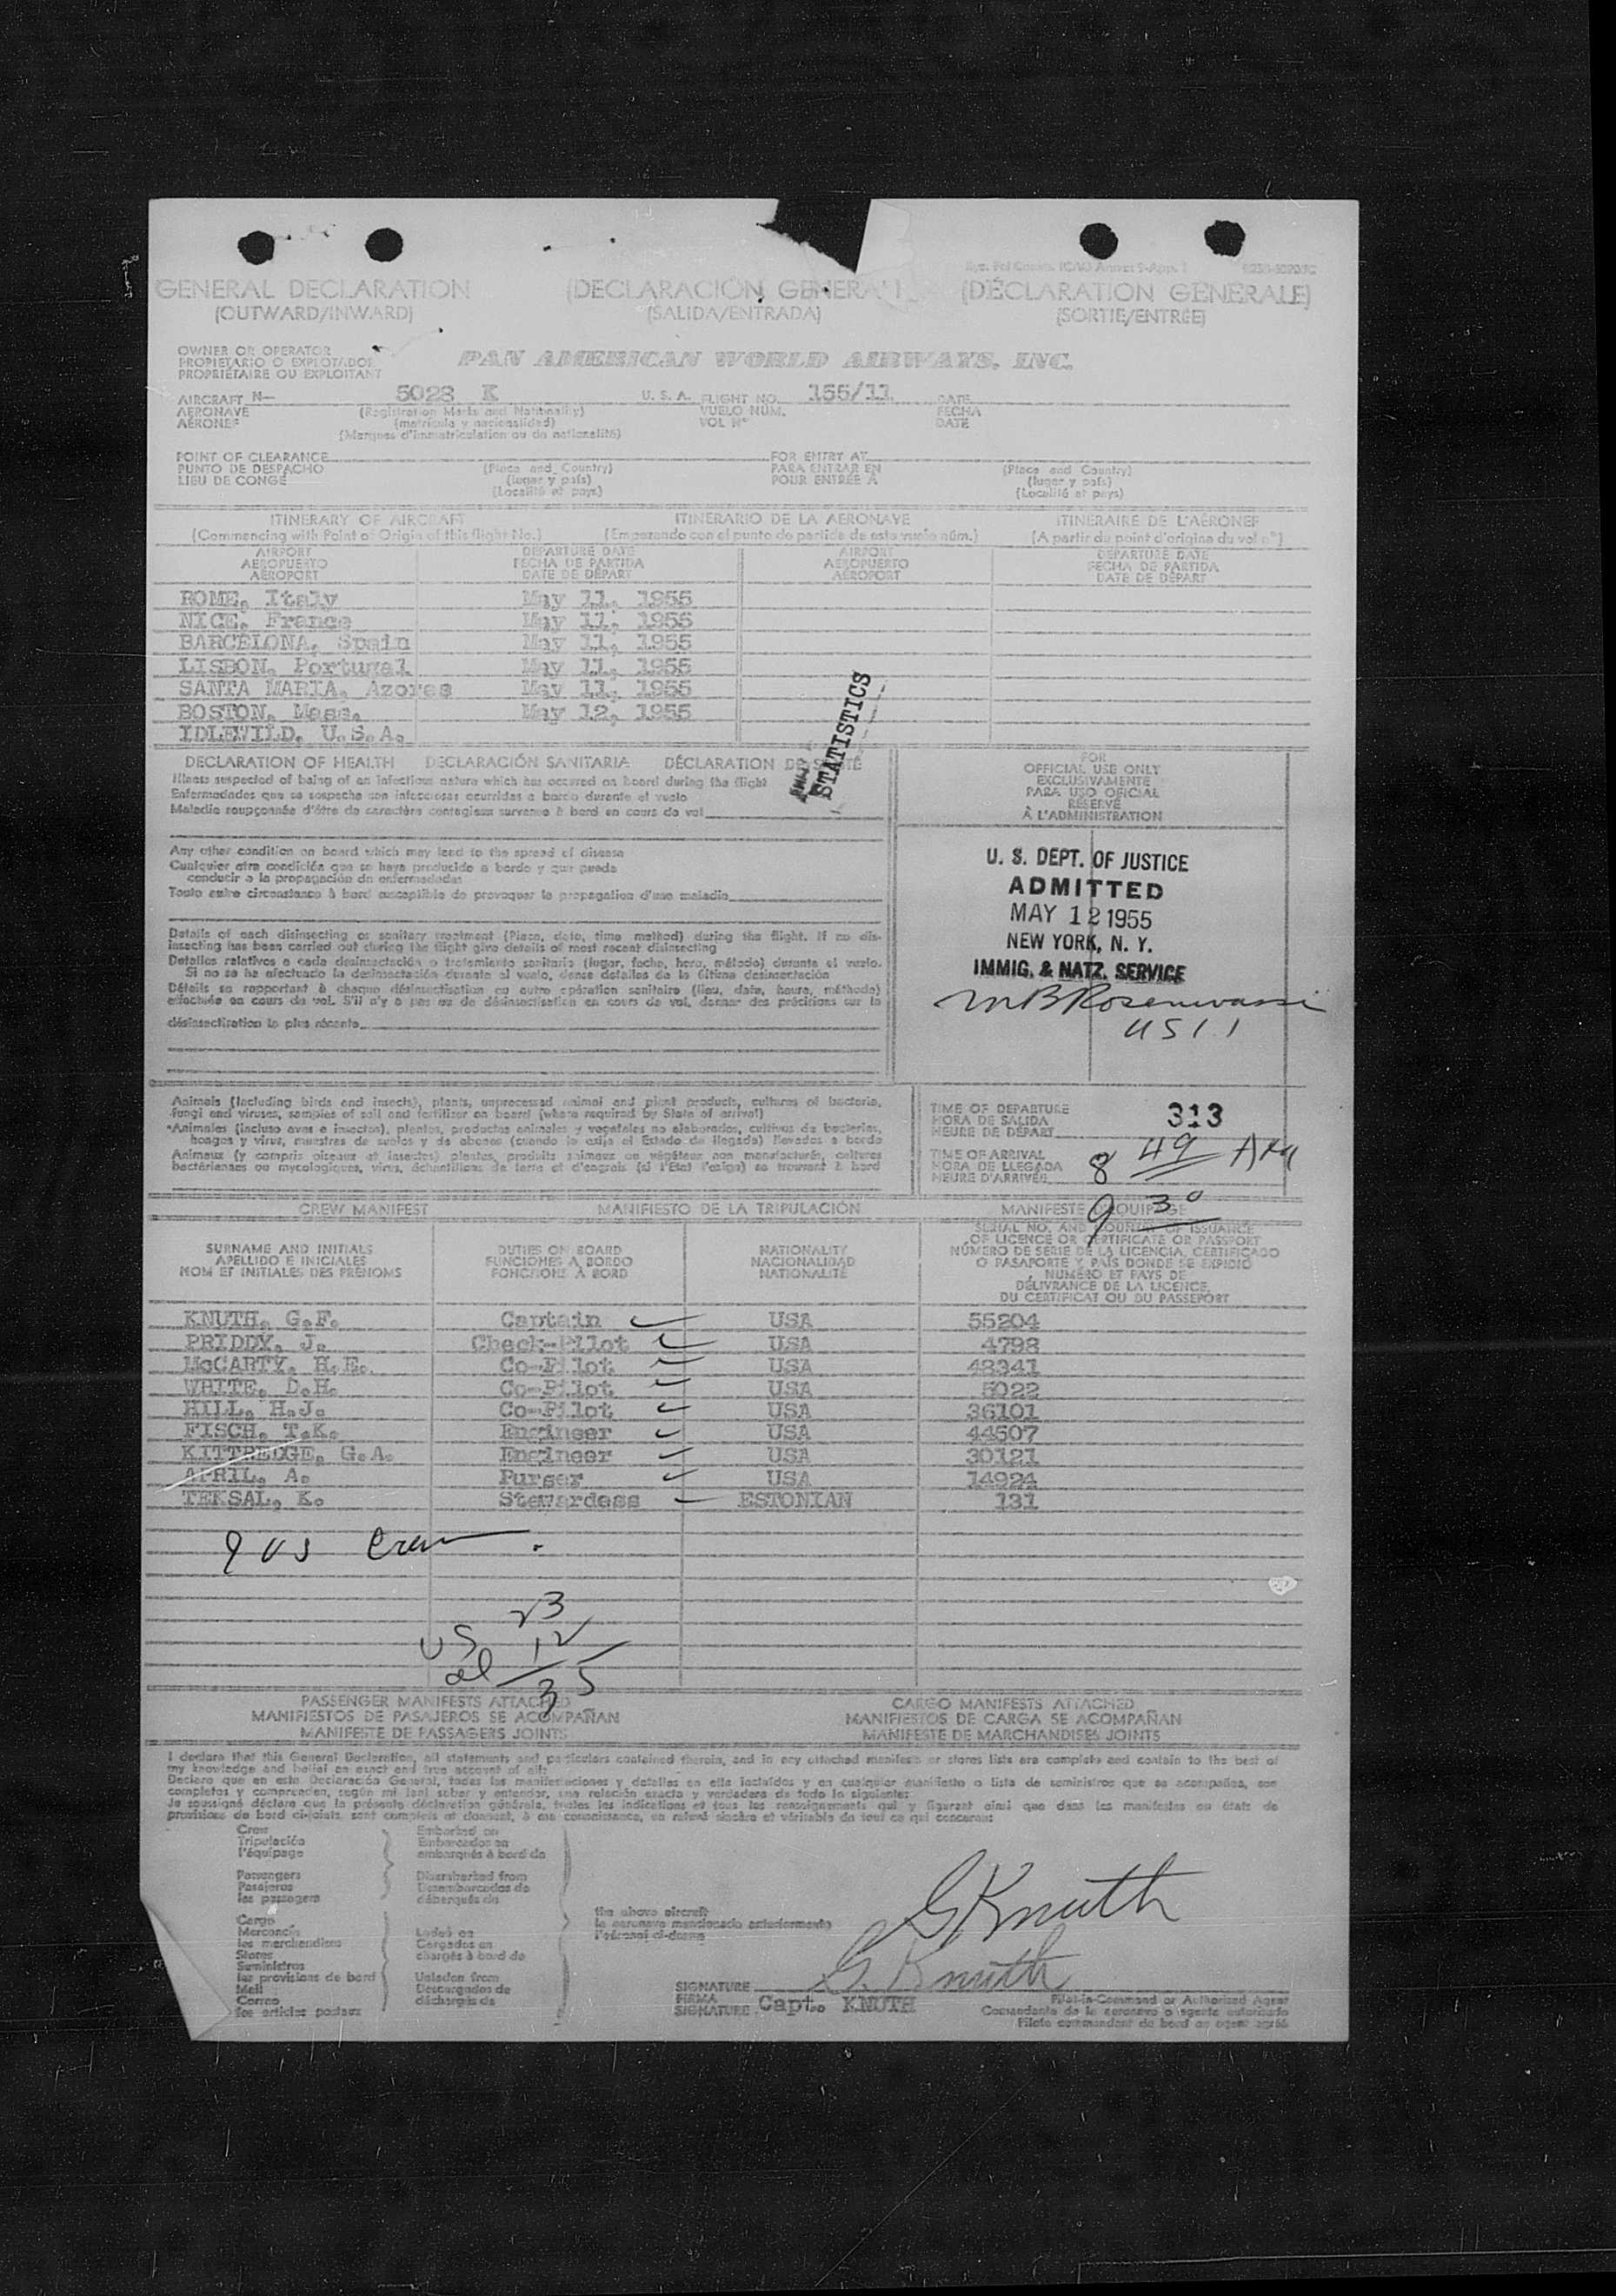 GENERAL DECLARATION (DECLARACIÓN GENERAL) (DÉCLARATION GENERALE)
(OUTWARD/INWARD) (SALIDA/ENTRADA) (SORTIE/ENTRÉE)
OWNER OR OPERATOR
PROPIETARIO O EXPLOTADOR PAN AMERICAN WORLD AIRWAYS, INC.
PROPRIÉTAIRE OU EXPLOITANT
AIRCRAFT N— 5028 K U. S. A. FLIGHT NO. 155/11 DATE
AERONAVE (Registration Marks and Nationality) VUELO NÚM. FECHA
AÉRONEF (matrícula y nacionalidad) VOL Nº DATE
(Marques d'immatriculation ou de nationalité)
POINT OF CLEARANCE FOR ENTRY AT
PUNTO DE DESPACHO (Place and Country) PARA ENTRAR EN (Place and Country)
LIEU DE CONGÉ (lugar y país) POUR ENTRÉE À (lugar y país)
(Localité et pays) (Localité et pays)
ITINERARY OF AIRCRAFT ITINERARIO DE LA AERONAVE ITINÉRAIRE DE L'AÉRONEF
(Commencing with Point of Origin of this flight No.) (Empezando con el punto de partida de este vuelo núm.) (A partir du point d'origine du vol nº)
AIRPORT DEPARTURE DATE AIRPORT DEPARTURE DATE
AEROPUERTO FECHA DE PARTIDA AEROPUERTO FECHA DE PARTIDA
AÉROPORT DATE DE DÉPART AÉROPORT DATE DE DÉPART
ROME, Italy May 11, 1955
NICE, France May 11, 1955
BARCELONA, Spain May 11, 1955
LISBON, Portugal May 11, 1955
SANTA MARIA, Azores May 11, 1955
BOSTON, Mass. May 12, 1955
IDLEWILD, U.S.A.
STATISTICS
DECLARATION OF HEALTH DECLARACIÓN SANITARIA DÉCLARATION DE SANTÉ
Illness suspected of being of an infectious nature which has occured on board during the flight
Enfermedades que se sospecha son infecciosas ocurridas a bordo durante el vuelo
Maladie soupçonnée d'être de caractère contagieux survenue à bord en cours de vol
Any other condition on board which may lead to the spread of disease
Cualquier otra condición que se haya producido a bordo y que pueda
conducir a la propagación de enfermedades
Toute autre circonstance à bord susceptible de provoquer la propagation d'une maladie
Details of each disinsecting or sanitary treatment (Place, date, time method) during the flight. If no dis-
insecting has been carried out during the flight give details of most recent disinsecting
Detalles relativos a cada desinsectación o tratamiento sanitario (lugar, fecha, hora, método) durante el vuelo.
Si no se ha efectuado la desinsectación durante el vuelo, dense detalles de la última desinsectación
Détails se rapportant à chaque désinsectisation ou autre opération sanitaire (lieu, date, heure, méthode)
effectuée en cours de vol. S'il n'y a pas eu de désinsectisation en cours de vol, donner des précisions sur la
désinsectisation la plus récente
FOR
OFFICIAL USE ONLY
EXCLUSIVAMENTE
PARA USO OFICIAL
RÉSERVÉ
À L'ADMINISTRATION
U. S. DEPT. OF JUSTICE
ADMITTED
MAY 12 1955
NEW YORK, N. Y.
IMMIG. & NATZ. SERVICE
Animals (including birds and insects), plants, unprocessed animal and plant products, cultures of bacteria,
fungi and viruses, samples of soil and fertilizer on board (where required by State of arrival)
Animales (incluso aves e insectos), plantas, productos animales y vegetales no elaborados, cultivos de bacterias,
hongos y virus, muestras de suelos y de abonos (cuando lo exija el Estado de llegada) llevados a bordo
Animaux (y compris oiseaux et insectes) plantes, produits animaux ou végétaux non manufacturés, cultures
bactériennes ou mycologiques, virus, échantillons de terre et d'engrais (si l'État l'exige) se trouvant à bord
TIME OF DEPARTURE 313
HORA DE SALIDA
HEURE DE DÉPART
TIME OF ARRIVAL 8 49
HORA DE LLEGADA
HEURE D'ARRIVÉE
9 30
CREW MANIFEST MANIFIESTO DE LA TRIPULACIÓN MANIFESTE D'ÉQUIPAGE
SURNAME AND INITIALS DUTIES ON BOARD NATIONALITY SERIAL NO. AND COUNTRY OF ISSUANCE
APELLIDO E INICIALES FUNCIONES A BORDO NACIONALIDAD OF LICENCE OR CERTIFICATE OR PASSPORT
NOM ET INITIALES DES PRÉNOMS FONCTIONS À BORD NATIONALITÉ NÚMERO DE SERIE DE LA LICENCIA, CERTIFICADO
O PASAPORTE Y PAÍS DONDE SE EXPIDIÓ
NUMÉRO ET PAYS DE
DÉLIVRANCE DE LA LICENCE,
DU CERTIFICAT OU DU PASSEPORT
KNUTH, G.F. Captain USA 55204
PRIDDY, J. Check-Pilot USA 4798
McCARTY, H.E. Co-Pilot USA 48341
WHITE, D.H. Co-Pilot USA 5022
HILL, H.J. Co-Pilot USA 36101
FISCH, T.K. Engineer USA 44507
KITTREDGE, G.A. Engineer USA 30121
APRIL, A. Purser USA 14924
TEKSAL, K. Stewardess ESTONIAN 131
9 US Crew
23
US 12
al 35
PASSENGER MANIFESTS ATTACHED CARGO MANIFESTS ATTACHED
MANIFIESTOS DE PASAJEROS SE ACOMPAÑAN MANIFIESTOS DE CARGA SE ACOMPAÑAN
MANIFESTE DE PASSAGERS JOINTS MANIFESTE DE MARCHANDISES JOINTS
I declare that this General Declaration, all statements and particulars contained therein, and in any attached manifests or stores lists are complete and contain to the best of
my knowledge and belief an exact and true account of all:
Declaro que en esta Declaración General, todas las manifestaciones y detalles en ella incluidos y en cualquier manifiesto o lista de suministros que se acompañan, son
completos y comprenden, según mi leal saber y entender, una relación exacta y verdadera de todo lo siguiente:
Je soussigné déclare que la présente déclaration générale, toutes les indications et tous les renseignements qui y figurent ainsi que dans les manifestes ou états de
provisions de bord ci-joints, sont complets et donnent, à ma connaissance, un relevé sincère et véritable de tout ce qui concerne:
Crew Embarked on
Tripulación Embarcados en
l'équipage embarqués à bord de
Passengers Disembarked from
Pasajeros Desembarcados de
les passagers débarqués de
the above aircraft
la aeronave mencionada anteriormente
l'aéronef ci-dessus
Cargo
Mercancía Laded on
les marchandises Cargados en
Stores chargés à bord de
Suministros
les provisions de bord Unladen from
Mail Descargados de
Correo déchargés de
les articles postaux
G Knuth
G. Knuth
SIGNATURE
FIRMA Capt. KNUTH Pilot-in-Command or Authorized Agent
SIGNATURE Comandante de la aeronave o agente autorizado
Pilote commandant de bord ou agent agréé